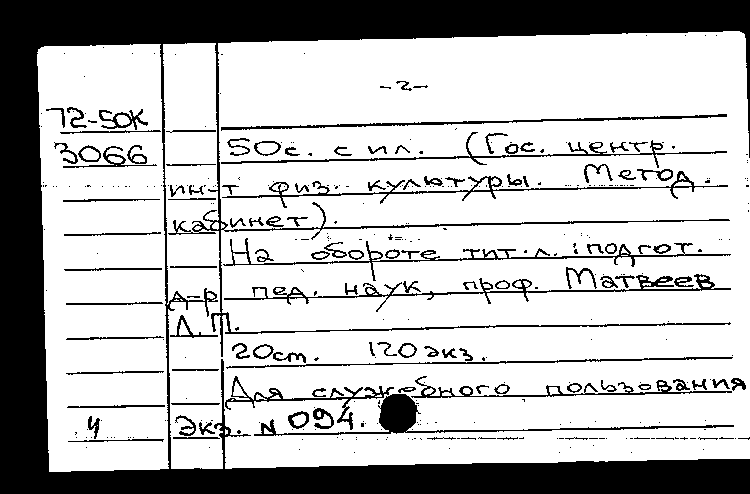 -2-
72-50К
3066 50с. с ил. (Гос. центр.
ин-т физ. культуры. Метод.
кабинет).
На обороте тит. л.: подгот.
д-р пед. наук, проф. Матвеев
Л.П.
20см. 120 экз.
Для служебного пользования
Экз. N 094.
ч